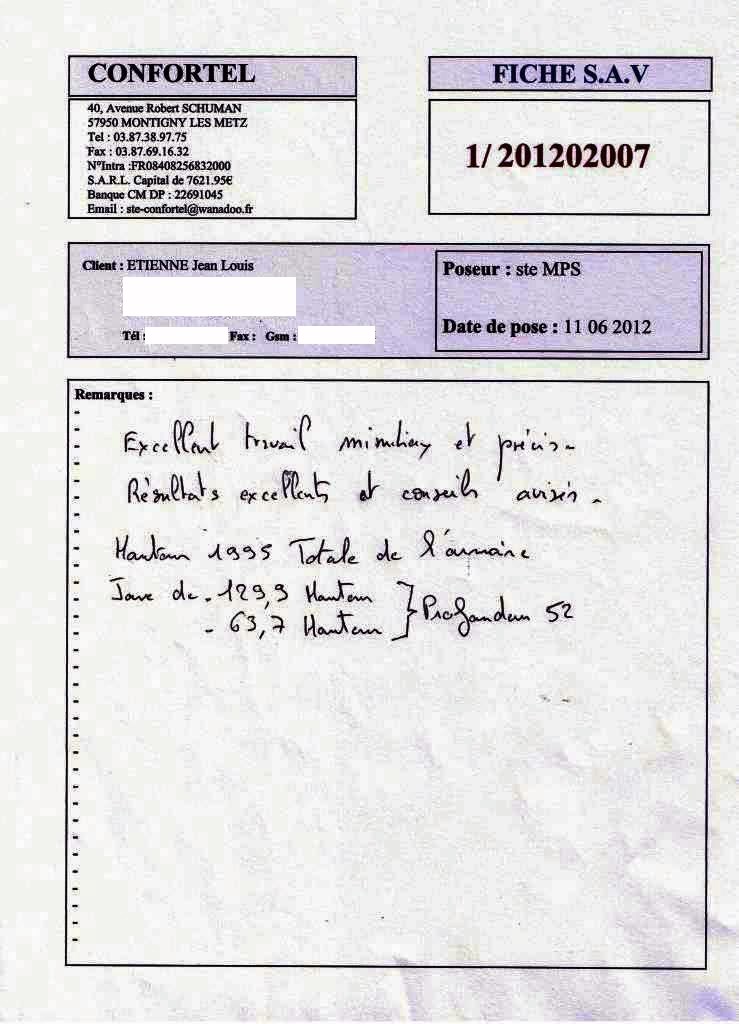 CONFORTEL
40, Avenue Robert SCHUMAN
57950 MONTIGNY LES METZ
Tel : 03.87.38.97.75
Fax : 03.87.69.16.32
N°Intra :FR08408256832000
S.A.R.L. Capital de 7621.95€
Banque CM DP : 22691045
Email : ste-confortel@wanadoo.fr
FICHE S.A.V
1/ 201202007
Client : ETIENNE Jean Louis
Tél : Fax : Gsm :
Poseur : ste MPS
Date de pose : 11 06 2012
Remarques :
Excellent travail et précis -
Résultats excellents et conseils avisés -
Hauteur 1995 Totale de l'armoire
Joue de - 129,9 Hauteur
- 63,7 Hauteur } Profondeur 52